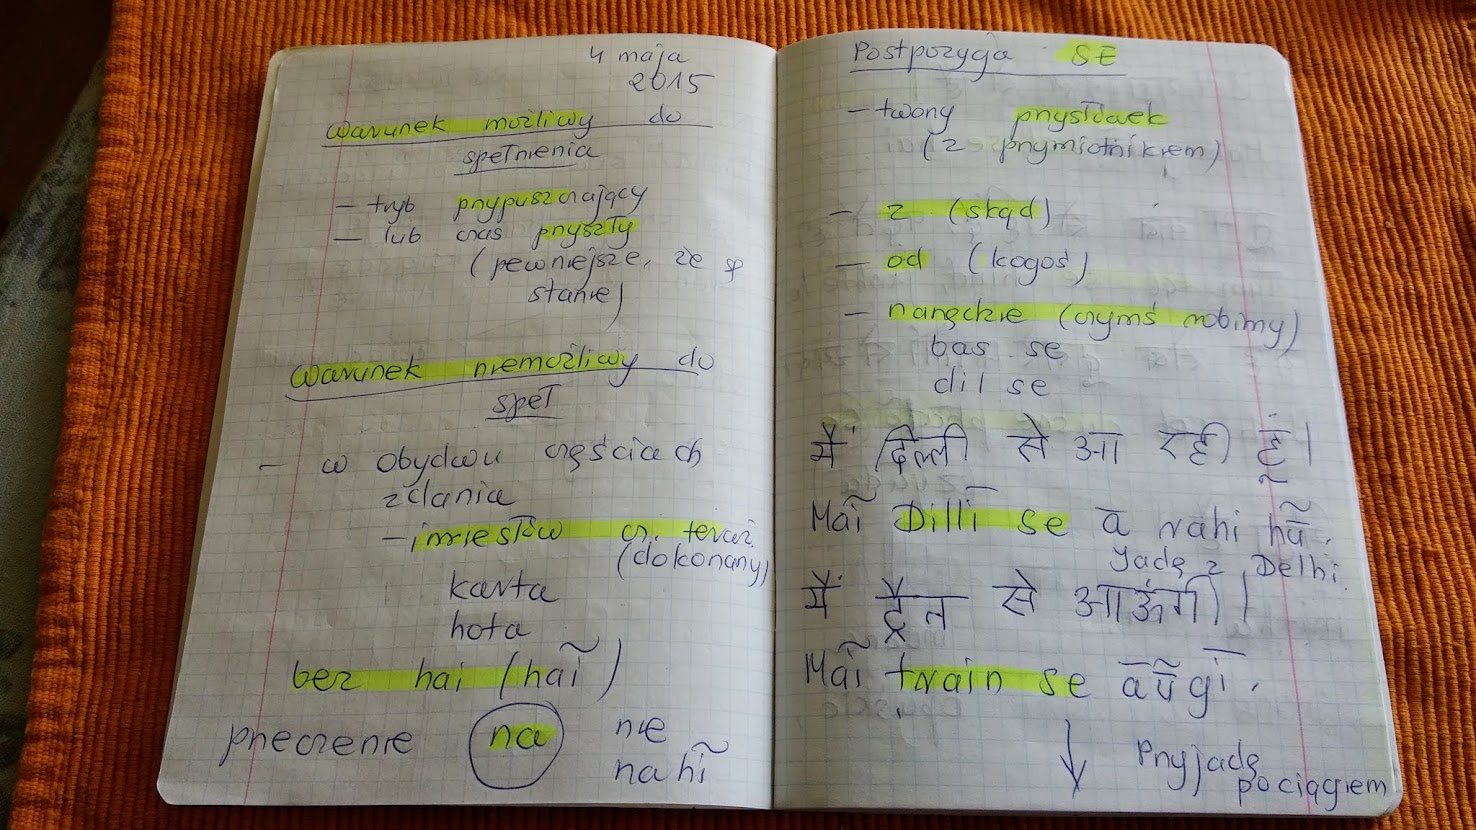 4 maja
2015
warunek możliwy do
spełnienia
- tryb przypuszczający
- lub czas przyszły
(pewniejsze, że się
stanie)
Warunek niemożliwy do
speł
- w obydwu częściach
zdania
- imiesłów cz. teraź.
(dokonany)
karta
hota
bez hai (haĩ)
przeczenie na nie
nahĩ
Postpozycja SE
- tworzy przysłówek
(z przymiotnikiem)
- z (skąd)
- od (kogoś)
- narzędzie (czymś robimy)
bas se
dil se
मैं दिल्ली से आ रही हूँ।
Maĩ Dillī se ā rahi hū̃.
Jadę z Delhi.
मैं ट्रैन से आऊंगी।
Maĩ train se āū̃gī.
Przyjadę
pociągiem